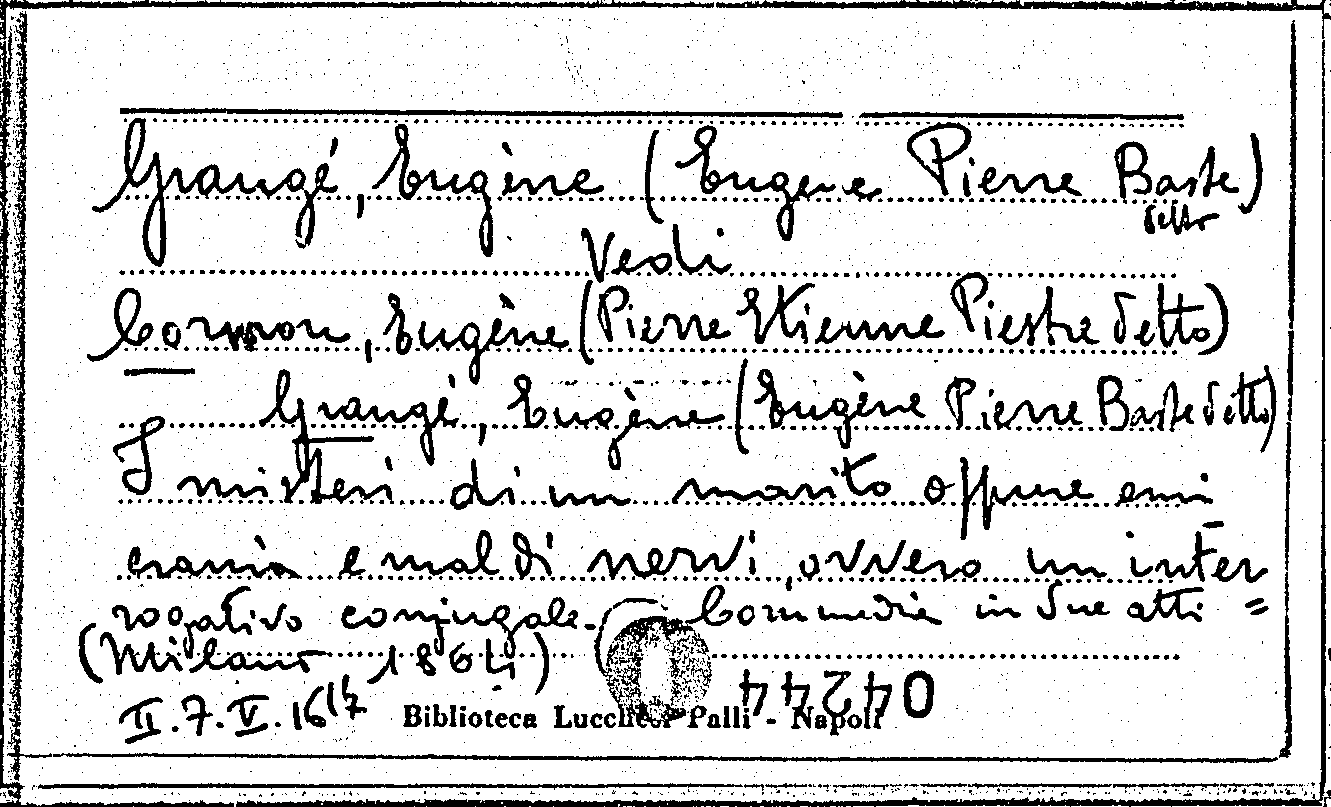 Grangé, Eugène (Eugene Pierre Baste)
detto
Vedi
Cormon, Eugène (Pierre Etienne Piestre detto)
Grangé, Eugène (Eugène Pierre Baste detto)
I misteri di un marito oppure emi
crania e mal di nervi, ovvero un inter
rogativo conjugale. Commedia in due atti =
(Milano 1864)
II.7.V.16 17
04244
Biblioteca Lucchesi Palli - Napoli